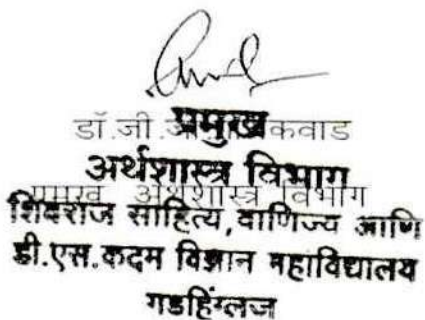 डॉ.जी. कवाड
प्रमुख
अर्थशास्त्र विभाग
प्रमुख अर्थशास्त्र विभाग
शिवराज साहित्य,वाणिज्य आणि
डी.एस.कदम विज्ञान महाविद्यालय
गडहिंग्लज